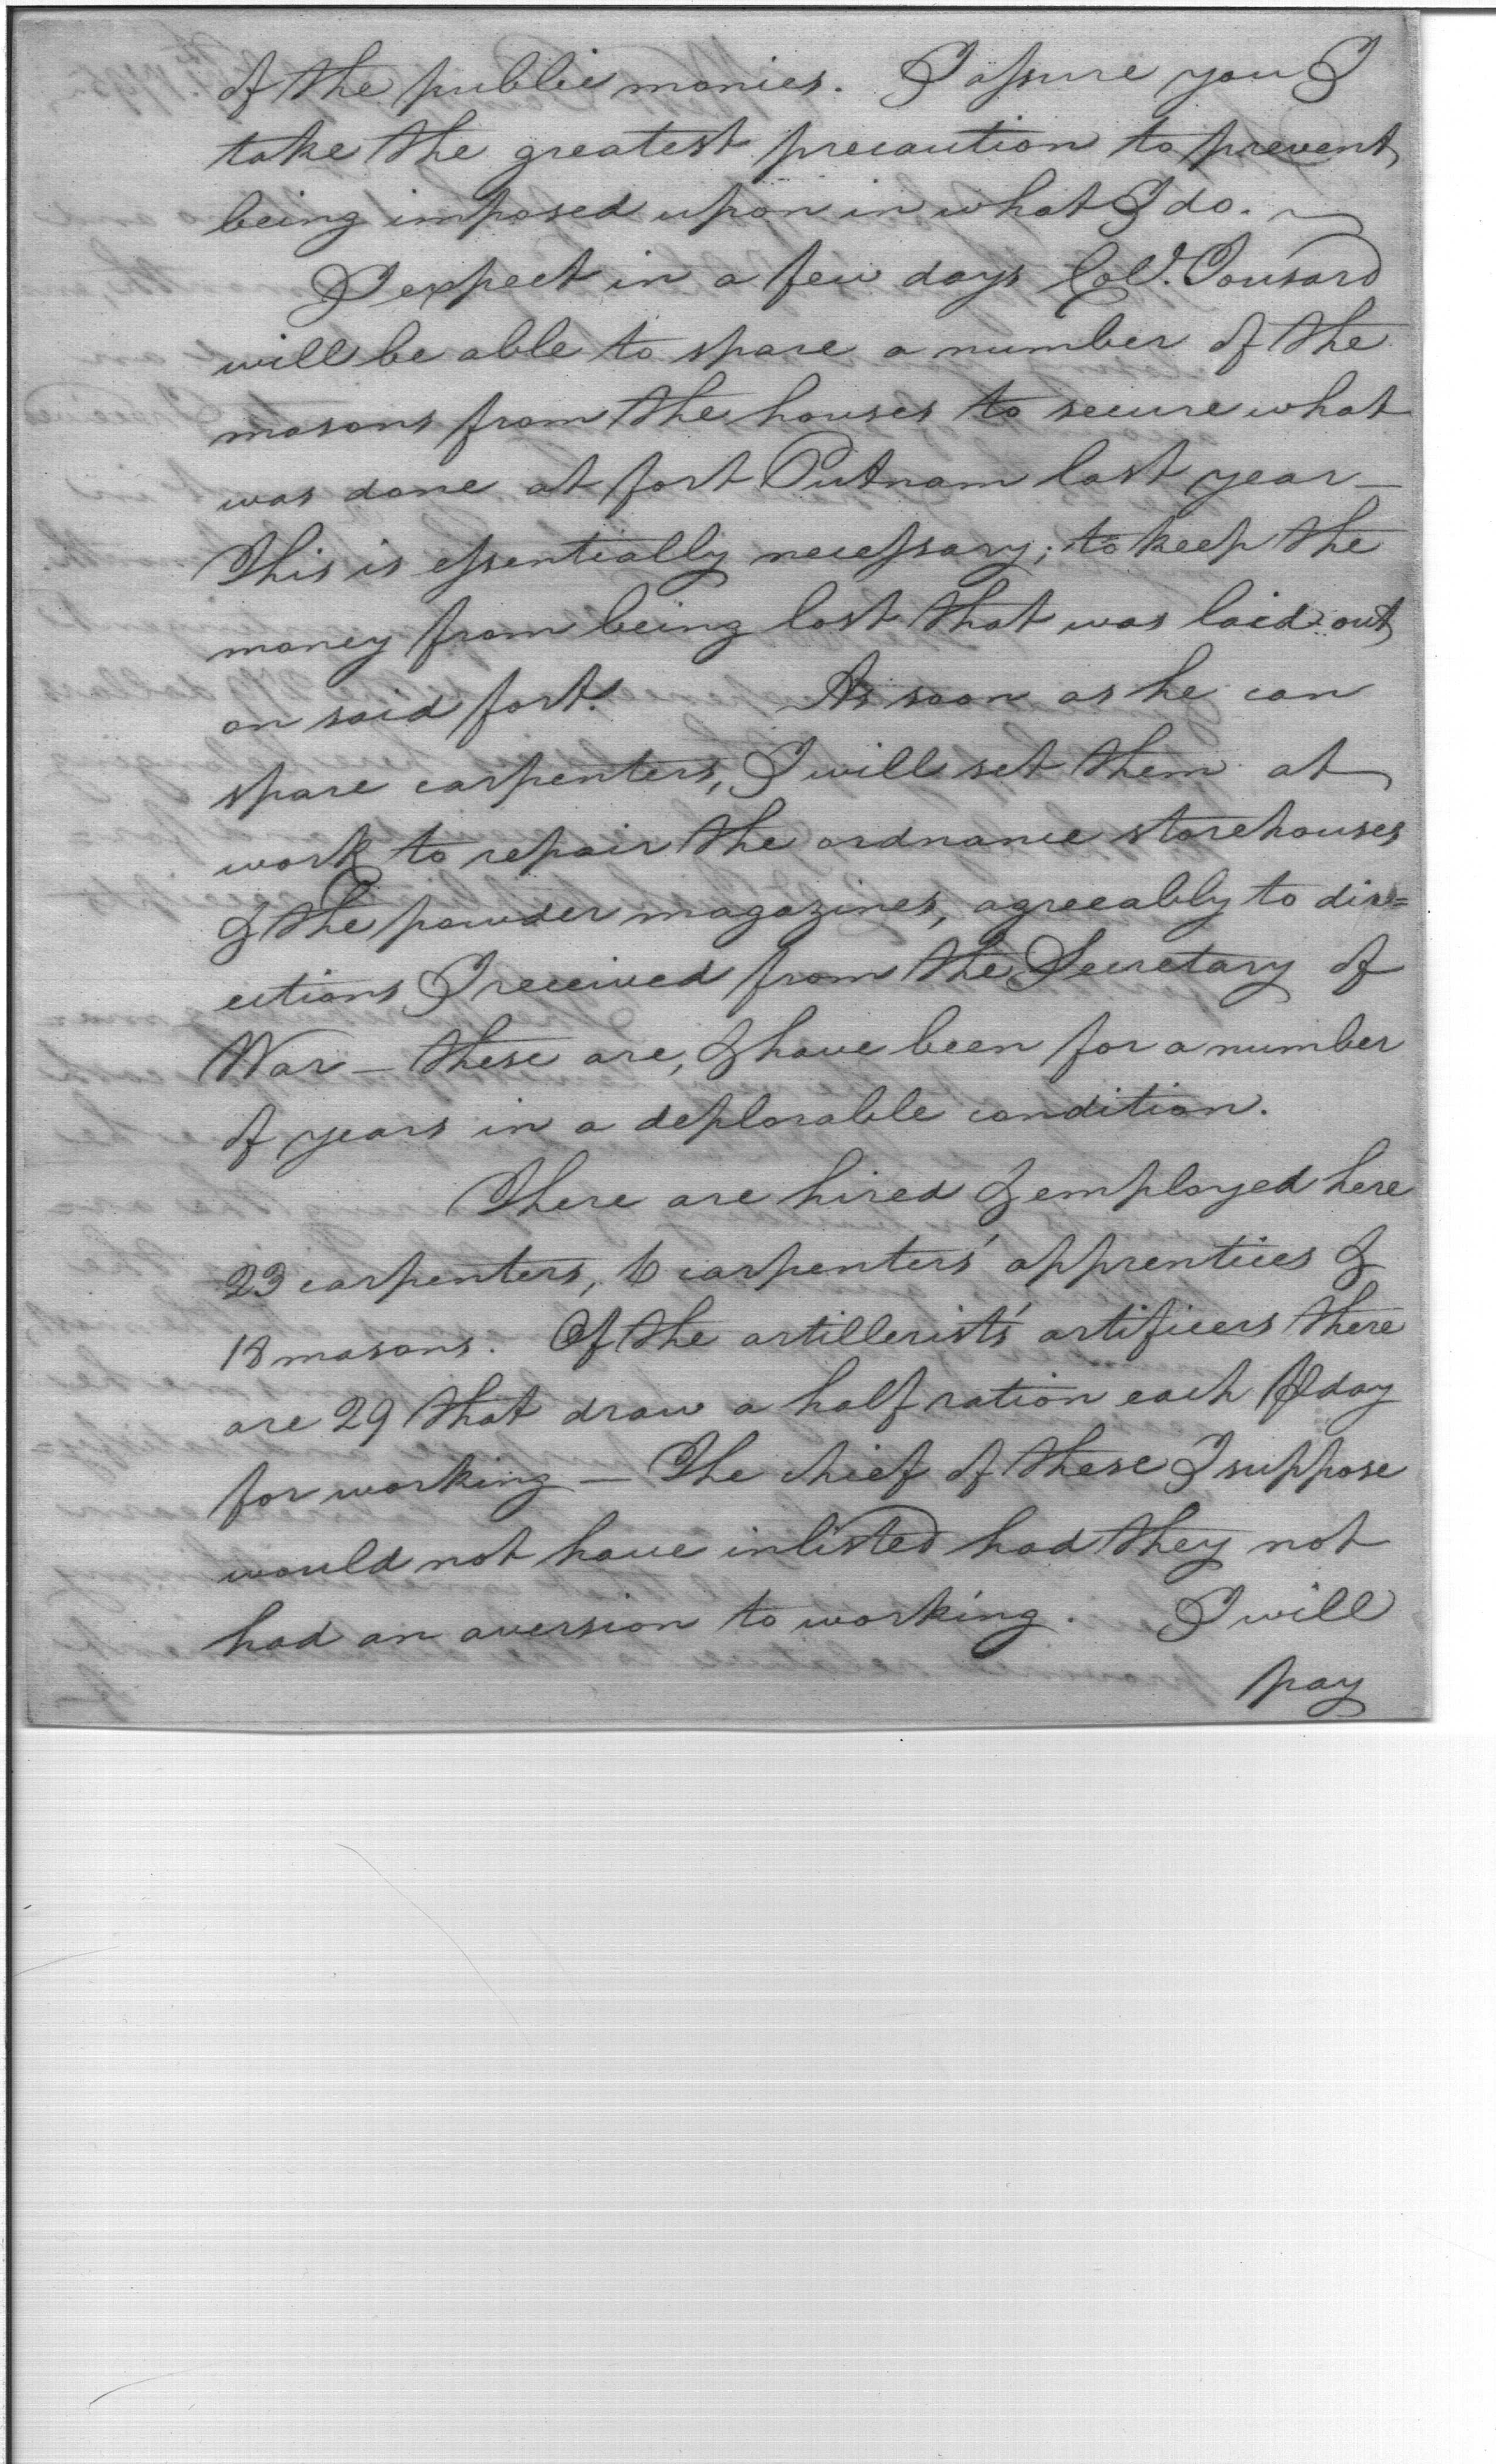 of the public monies. I assure you I
take the greatest precaution to prevent
being imposed upon in what I do.
I expect in a few days Col. Tousard
will be able to spare a number of the
masons from the houses to secure what
was done at fort Putnam last year—
This is essentially necessary; to keep the
money from being lost that was laid out
on said fort. As soon as he can
spare carpenters, I will set them at
work to repair the ordnance storehouses
& the powder magazines, agreeably to dir=
ections I received from the Secretary of
War — these are, & have been for a number
of years in a deplorable condition.
There are hired & employed here
23 carpenters, 6 carpenters' apprentices &
18 masons. Of the artillerists' artificers there
are 29 that draw a half ration each ⅌ day
for working — The chief of these I suppose
would not have inlisted had they not
had an aversion to working. I will
pay